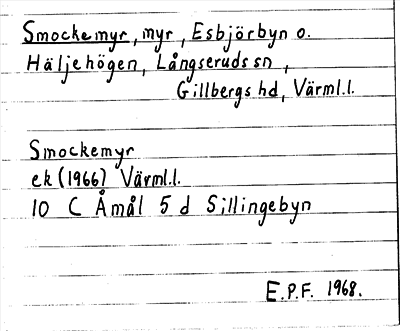 Smockemyr, myr, Esbjörbyn o.
Häljehögen, Långseruds sn,
Gillbergs hd, Värml.l.
Smockemyr
ek (1966) Värml.l.
10 C Åmål 5 d Sillingebyn
E.P.F. 1968.